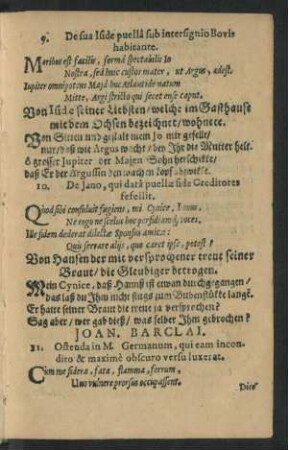 9. De sua Iside puellâ sub intersignio Bovis
habitante.
Moribus est facilis, formâ spectabilis Io
Nostra, sed huic custos mater, ut Argus, adest.
Jupiter omnipotens Majâ huc Atlantide natum
Mitte, Argi stricto qui secet ense caput.
Von Iside seiner Liebsten/ welche im Gasthause
mit dem Ochsen bezeichnet/ wohnete.
Von Sitten und gestalt mein Jo mir gefellt/
nur/ daß wie Argus wacht/ bey Ihr die Mutter helt.
ô grosser Jupiter der Majen Sohn herschikke/
daß Er der Argussin den wachen Kopf abzwikke.
10. De Jano, qui datâ puellæ fide Creditores
fefellit.
Quod sibi consuluit fugiens, mi Cynice, Janus,
Ne rogo ne scelus hoc perfidiamque voces,
Ille fidem dederat dilectæ Sponsus amicæ:
Quis servare alijs, quo caret ipse, potest?
Von Hansen der mit versprochener treue seiner
Braut/ die Gleubiger betrogen.
Mein Cynice, daß Hannß ist etwan durchgegangen/
das laß du Ihm nicht flugs zum Bubenstükke langẽ.
Er hatte seiner Braut die treue ja versprochen?
Sag aber/ wer gab dieß/ was selber Ihm gebrochen?
JOAN. BARCLAI.
11. Ostenda in M. Germanum, qui eam incon-
dito & maximè obscuro versu luxerat.
Cùm me sidera, fata, flamma, ferrum,
Uno vulnere prorsus occupassent.
Dice